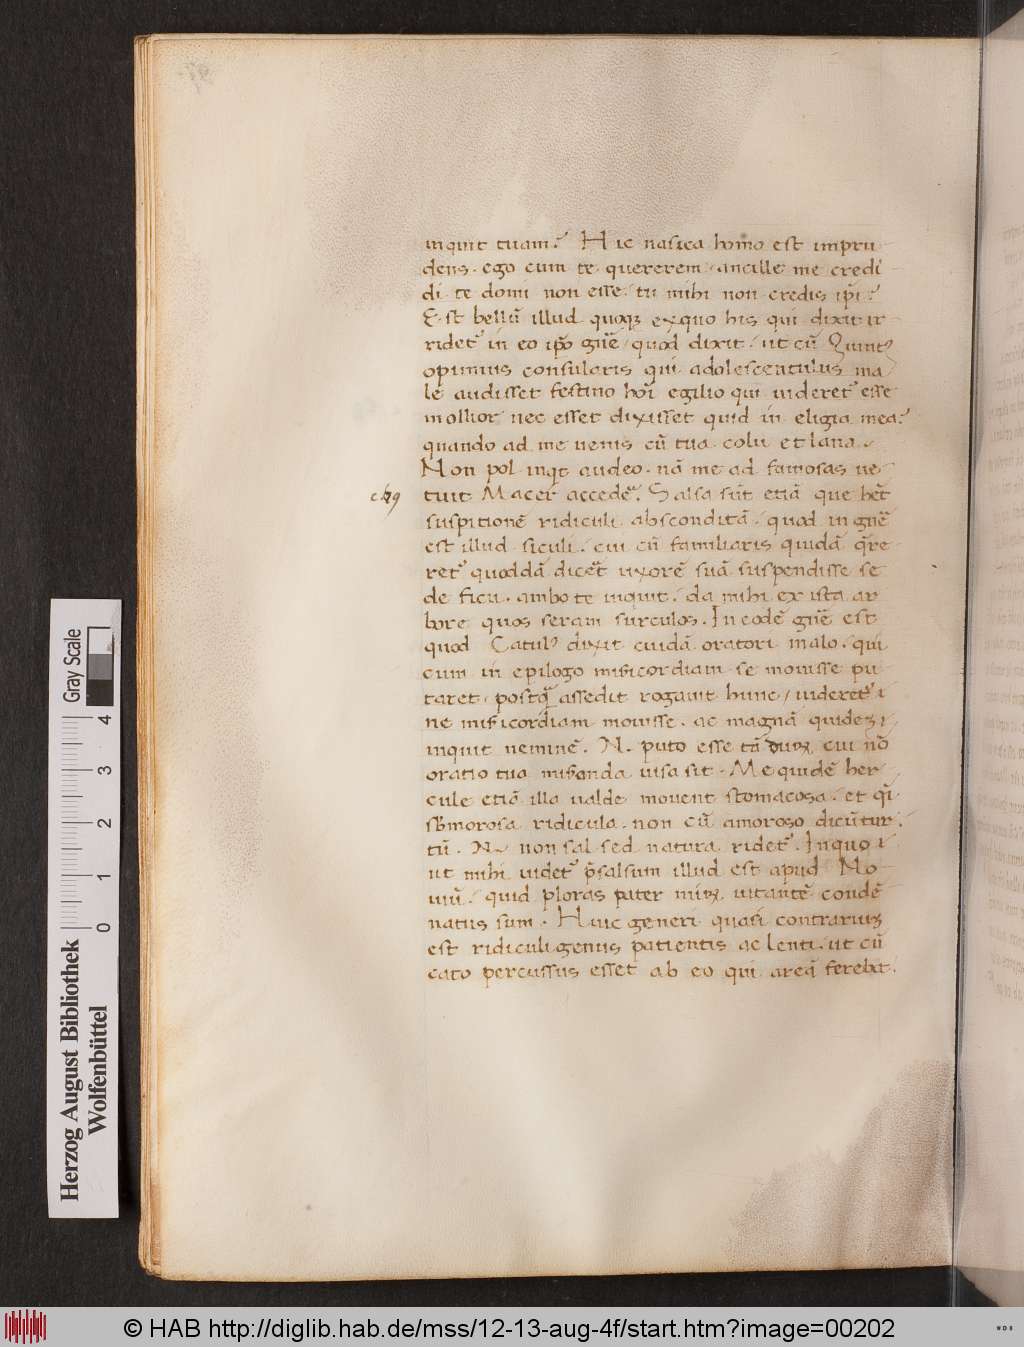 inquit tuam? Hic nasica homo est impru
dens. ego cum te quererem ancille me credi
di te domi non esse. tu mihi non credis ip̄i?
Est bellū illud quoqꝫ exquo his qui dixit ir
ridet᷑ in eo ip̄o gn̄e quod dixit. ut cū Quintꝰ
opimius consularis qui adolescentulus ma
le audisset festiuo hoī egilio qui uideret᷑ esse
mollior nec esset dixisset quid tu eligia mea?
quando ad me uenis cū tua colu et lana.
Non pol inqt audeo. nā me ad famosas ue
tuit Macer accedē. Salsa sūt etiā que hn̄t
suspitionē ridiculi absconditā. quod in gn̄e
est illud siculi. cui cū familiaris quidā q̄re
ret᷑ quoddā dicēt uxorē suā suspendisse se
de ficu. ambo te inquit. da mihi ex ista ar
bore quos seram surculos. In eodē gn̄e est
quod Catulꝰ dixit cuidā oratori malo. qui
cum in epilogo misīcordiam se mouisse pu
taret, postq̄ assedit rogauit hunc, uideret᷑ i
ne misīcordiam mouisse. ac magnā quidez i
inquit neminē. N. puto esse tā duꝝ cui nō
oratio tua misāonda uisa sit. Me quidē her
cule etiā illa ualde mouent stomacosa. et q̄i
sbmorosa ridicula. non cū amoroso dicūtur.
tū. N. non sal sed natura ridet᷑. In quo i
ut mihi uidet᷑ p̄salsum illud est apud No
uiū. quid ploras pater miꝝ. ni cantē condē
natus sum. Huic generi quasi contrariuꝫ
est ridiculi genus patientis ac lenti. ut cū
cato percussus esset ab eo qui arcā ferebat.
Herzog August Bibliothek
Wolfenbüttel
Gray Scale
0 1 2 3 4
© HAB http://diglib.hab.de/mss/12-13-aug-4f/start.htm?image=00202